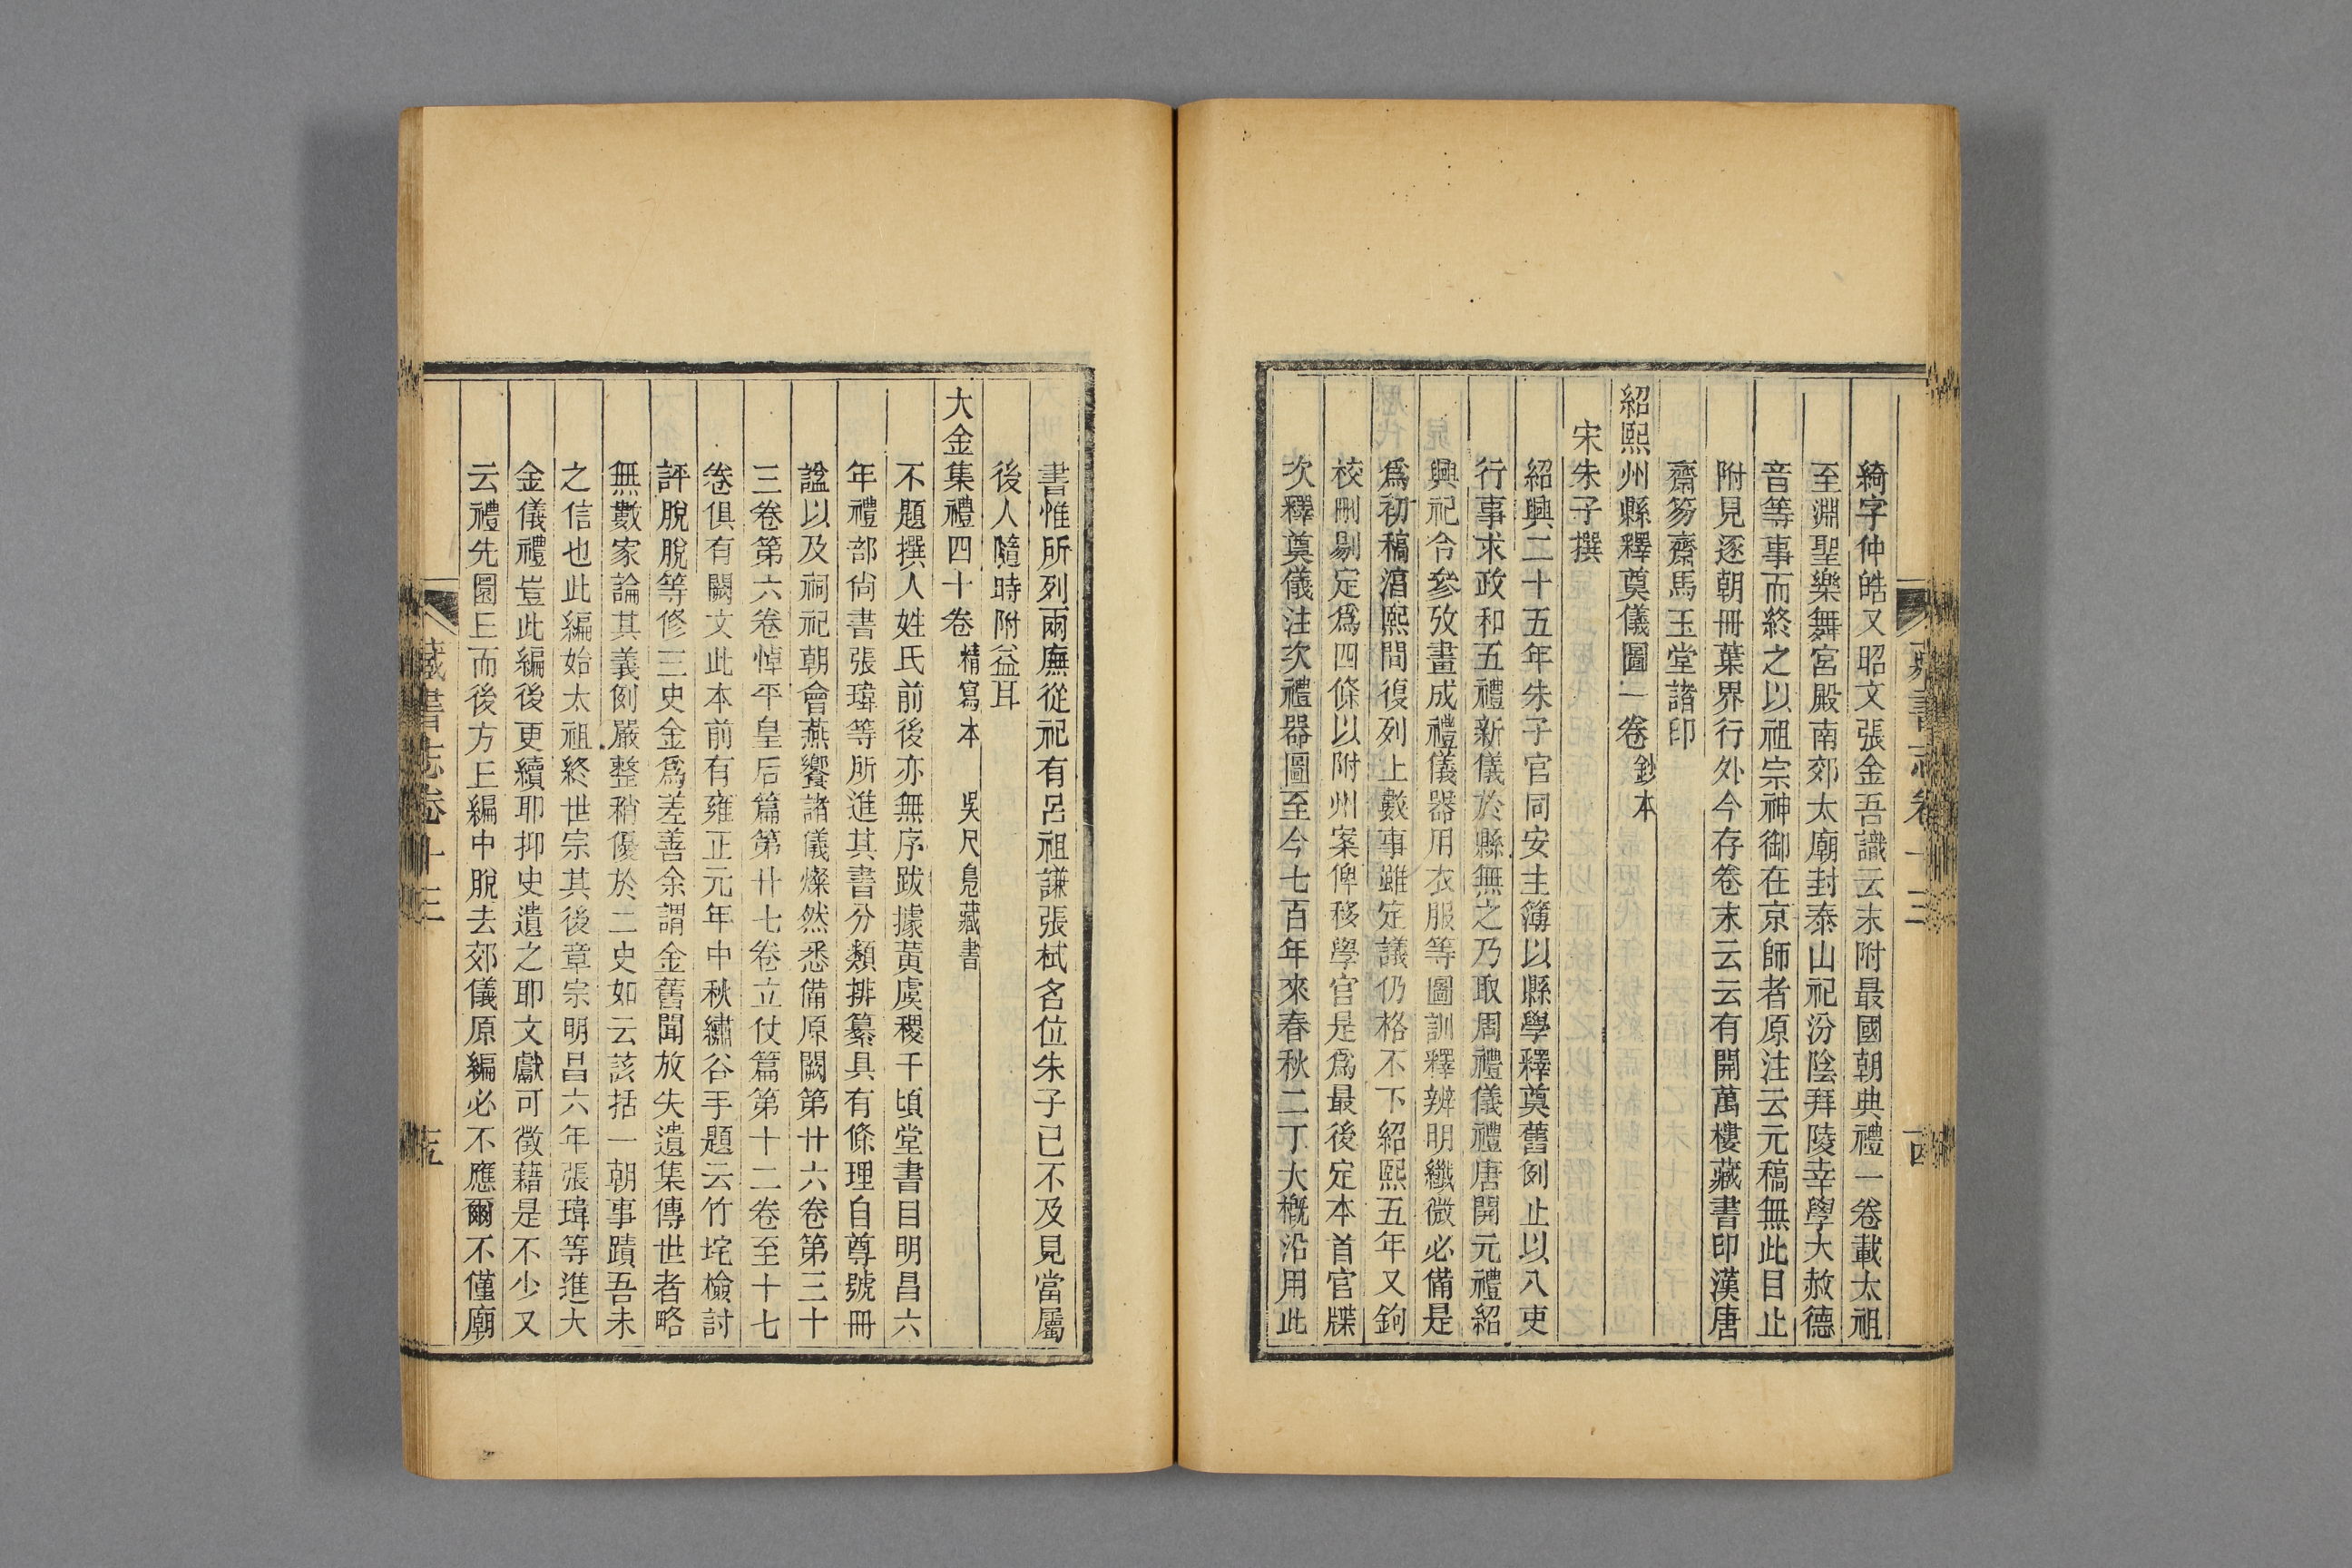 綺字仲皓又昭文張金吾識云末附最國朝典禮一卷載太祖
至淵聖樂舞宮殿南郊太廟封泰山祀汾陰拜陵幸學大赦德
音等事而終之以祖宗神御在京師者原注云元稿無此目止
附見逐朝冊葉界行外今存卷末云云有開萬樓藏書印漢唐
齋笏齋馬玉堂諸印
紹熙州縣釋奠儀圖一卷 鈔本
宋朱子撰
紹興二十五年朱子官同安主簿以縣學釋奠舊例止以八吏
行事求政和五禮新儀於縣無之乃取周禮儀禮唐開元禮紹
興祀令參攷畫成禮儀器用衣服等圖訓釋辨明纖微必備是
爲初稿淳熙間復列上數事雖定議仍格不下紹熙五年又鉤
校刪剔定爲四條以附州案俾移學官是爲最後定本首官牒
次釋奠儀注次禮器圖至今七百年來春秋二丁大槪沿用此
書惟所列兩廡從祀有呂祖謙張栻名位朱子已不及見當屬
後人隨時附益耳
大金集禮四十卷 精寫本 吳尺鳧藏書
不題撰人姓氏前後亦無序跋據黃虞稷千頃堂書目明昌六
年禮部尙書張瑋等所進其書分類排纂具有條理自尊號冊
諡以及祠祀朝會燕饗諸儀燦然悉備原闕第廿六卷第三十
三卷第六卷悼平皇后篇第廿七卷立仗篇第十二卷至十七
卷俱有闕文此本前有雍正元年中秋繡谷手題云竹垞檢討
評脫脫等修三史金爲差善余謂金舊聞放失遺集傳世者略
無數家論其義例嚴整稍優於二史如云該括一朝事蹟吾未
之信也此編始太祖終世宗其後章宗明昌六年張瑋等進大
金儀禮豈此編後更續耶抑史遺之耶文獻可徵藉是不少又
云禮先圜丘而後方丘編中脫去郊儀原編必不應爾不僅廟
藏書志卷十三